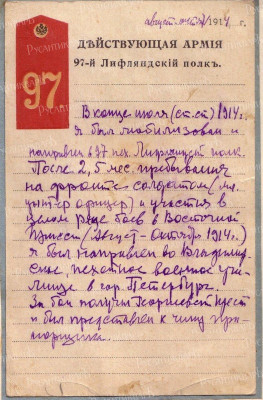 август-окт. 1914 г.
ДѢЙСТВУЮЩАЯ АРМІЯ
97-й Лифляндскій полкъ.
97
В конце июля (ст.ст) 1914 г.
я был мобилизован и
направлен в 97 пех. Лифляндский полк.
После 2,5 мес. пребывания
на фронте солдатом (мл.
унтер офицер) и участия в
целом ряде боев в Восточной
Пруссии (Август-Октябрь 1914 г.)
я был направлен во Владимир-
ское, пехотное военное учи-
лище в гор. Петербург.
За бои получил Георгиевский крест
и был представлен к чину пра-
порщика.